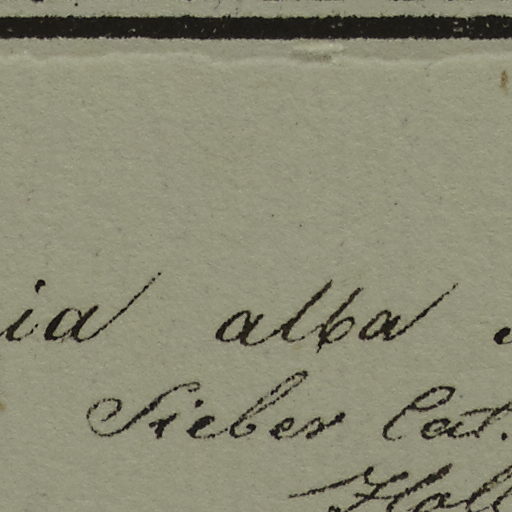 ia alba
Sieber Cat.
Holl